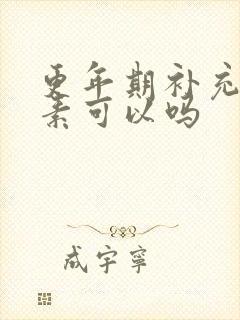 更年期补充
素可以吗
成宇寜